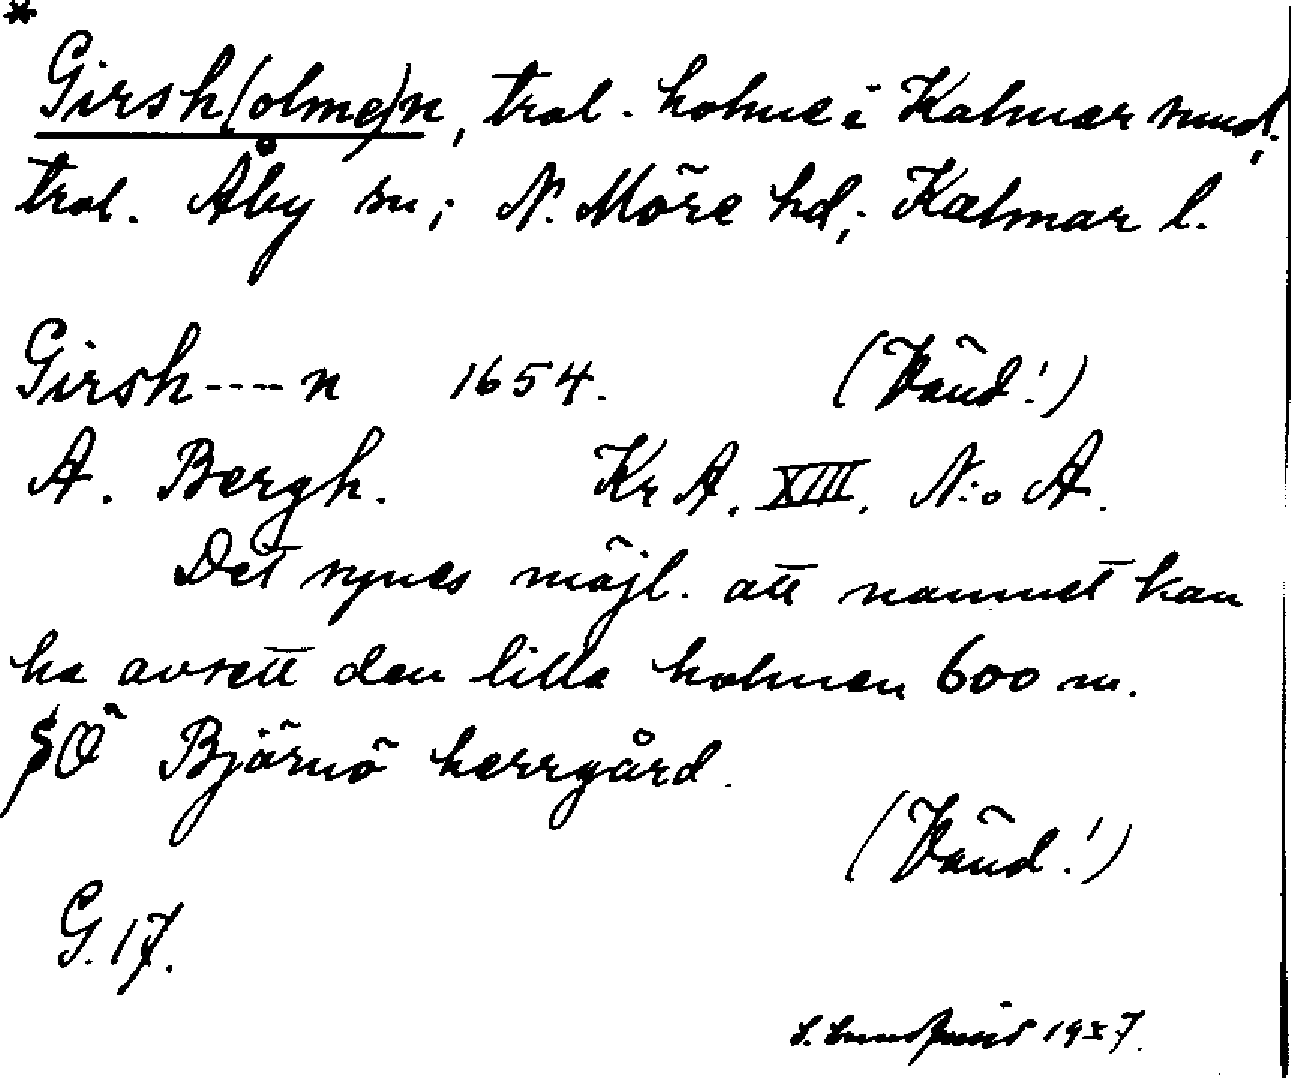 *
Girsh(olme)n, trol. holme i Kalmar sund,
trol. Åby sn; N. Möre hd; Kalmar l.
Girsh----n 1654. (Vänd!)
A. Bergh. Kr A. XIII. N:o A.
Det synes möjl. att namnet kan
ha avsett den lilla holmen 600 m.
SÖ Björnö herrgård.
(Vänd!)
G. 17.
S. Lundqvist 1937.